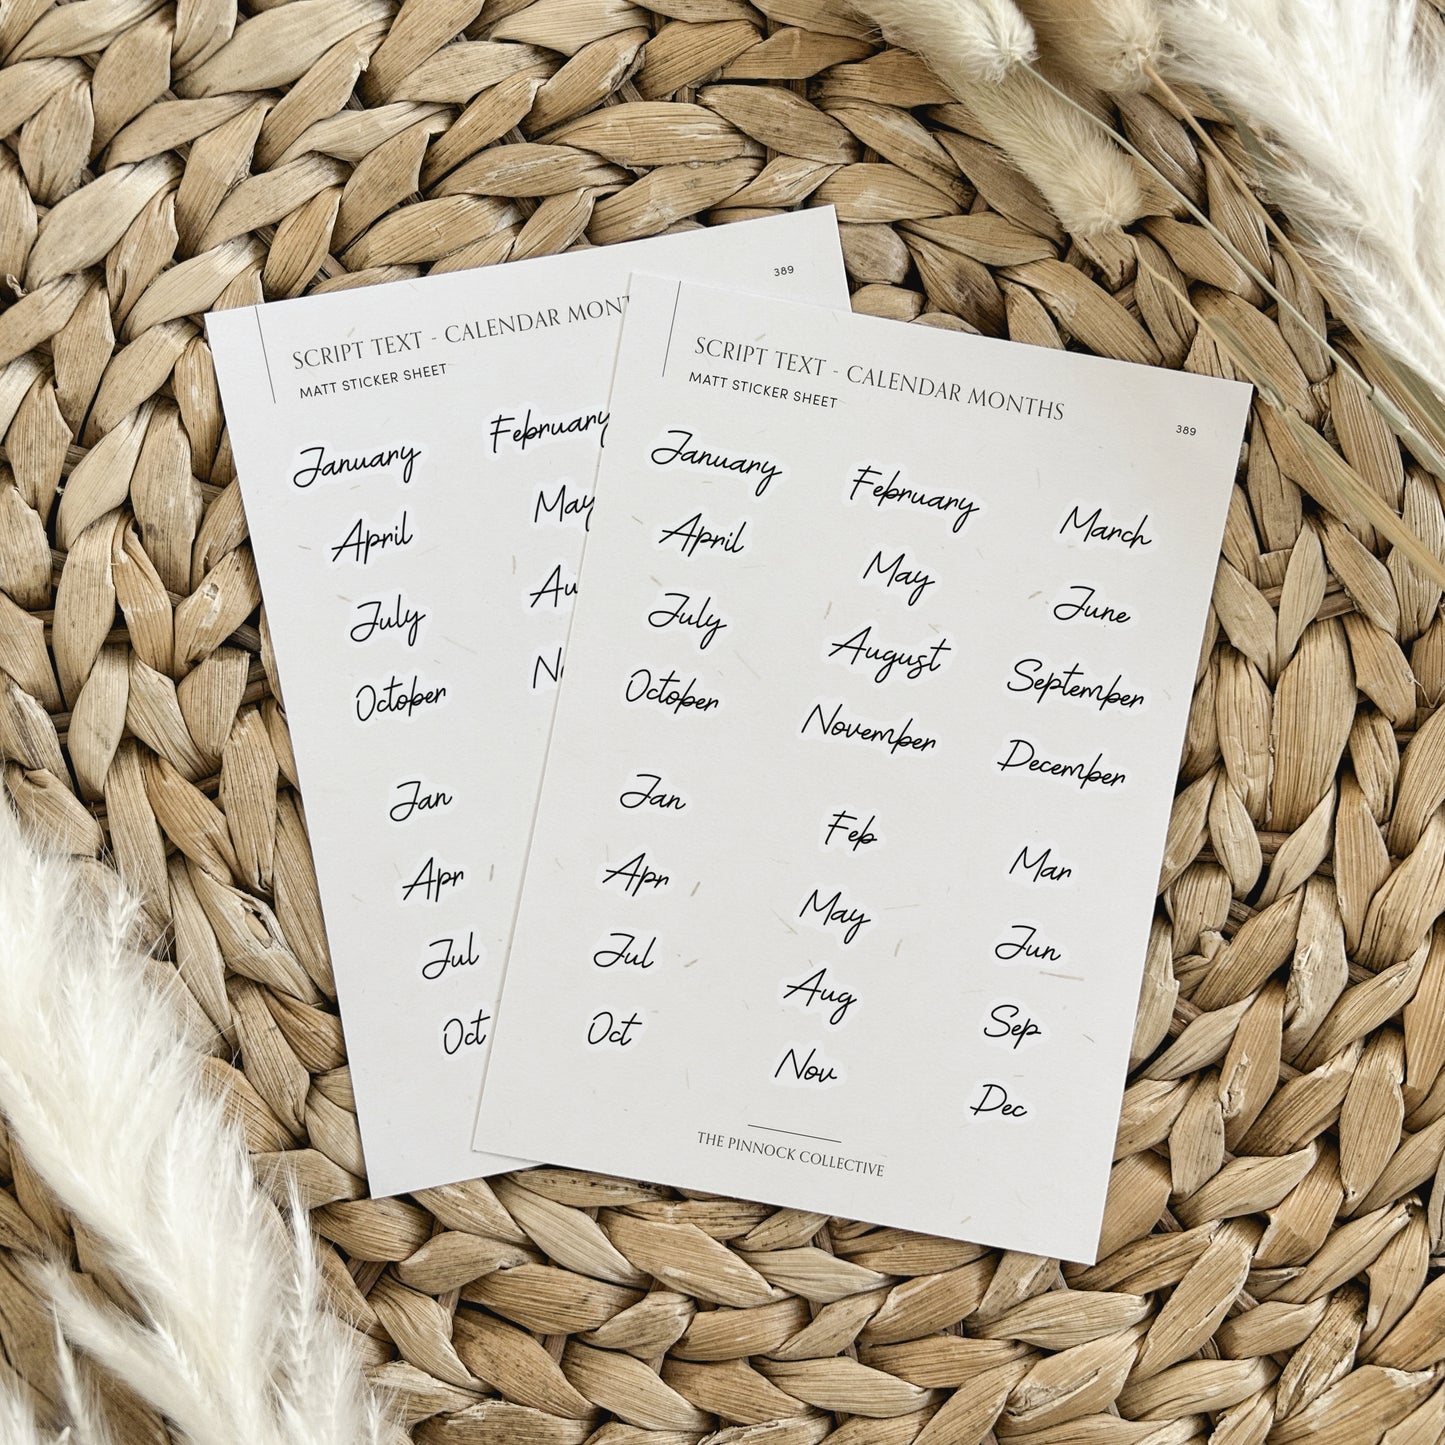 389
SCRIPT TEXT - CALENDAR MONT
MATT STICKER SHEET
January February
April May
July Au
October No
Jan
Apr
Jul
Oct
SCRIPT TEXT - CALENDAR MONTHS
MATT STICKER SHEET
389
January February March
April May June
July August September
October November December
Jan Feb Mar
Apr May Jun
Jul Aug Sep
Oct Nov Dec
THE PINNOCK COLLECTIVE